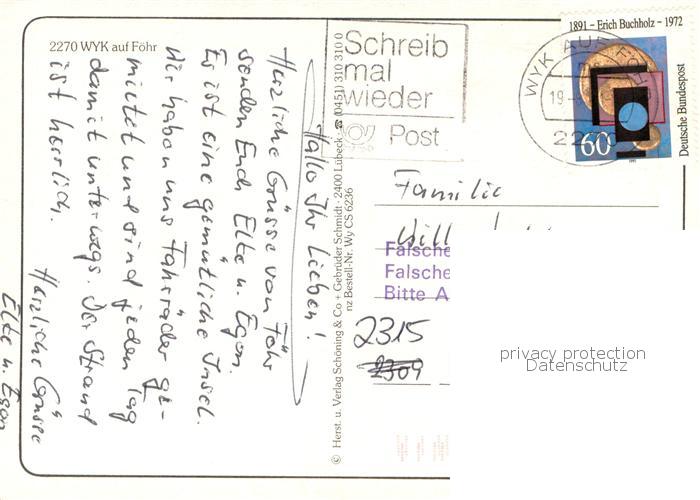 2270 WYK auf Föhr
Hallo Ihr Lieben!
Herzliche Grüsse von Föhr
senden Euch Elke u. Egon.
Es ist eine gemütliche Insel.
Wir haben uns Fahrräder ge-
mietet und sind jeden Tag
damit unterwegs. Der Strand
ist herrlich.
Herzliche Grüsse
Elke u. Egon
© Herst. u. Verlag Schöning & Co + Gebrüder Schmidt · 2400 Lübeck ☎ (0451) 310 310 0
nz Bestell-Nr. Wy CS 6236
Schreib
mal
wieder
Post
WYK AUF FÖHR
19
22
1891 – Erich Buchholz – 1972
Deutsche Bundespost
60
Familie
Falsche
Falsche
Bitte A
2315
2309
privacy protection
Datenschutz